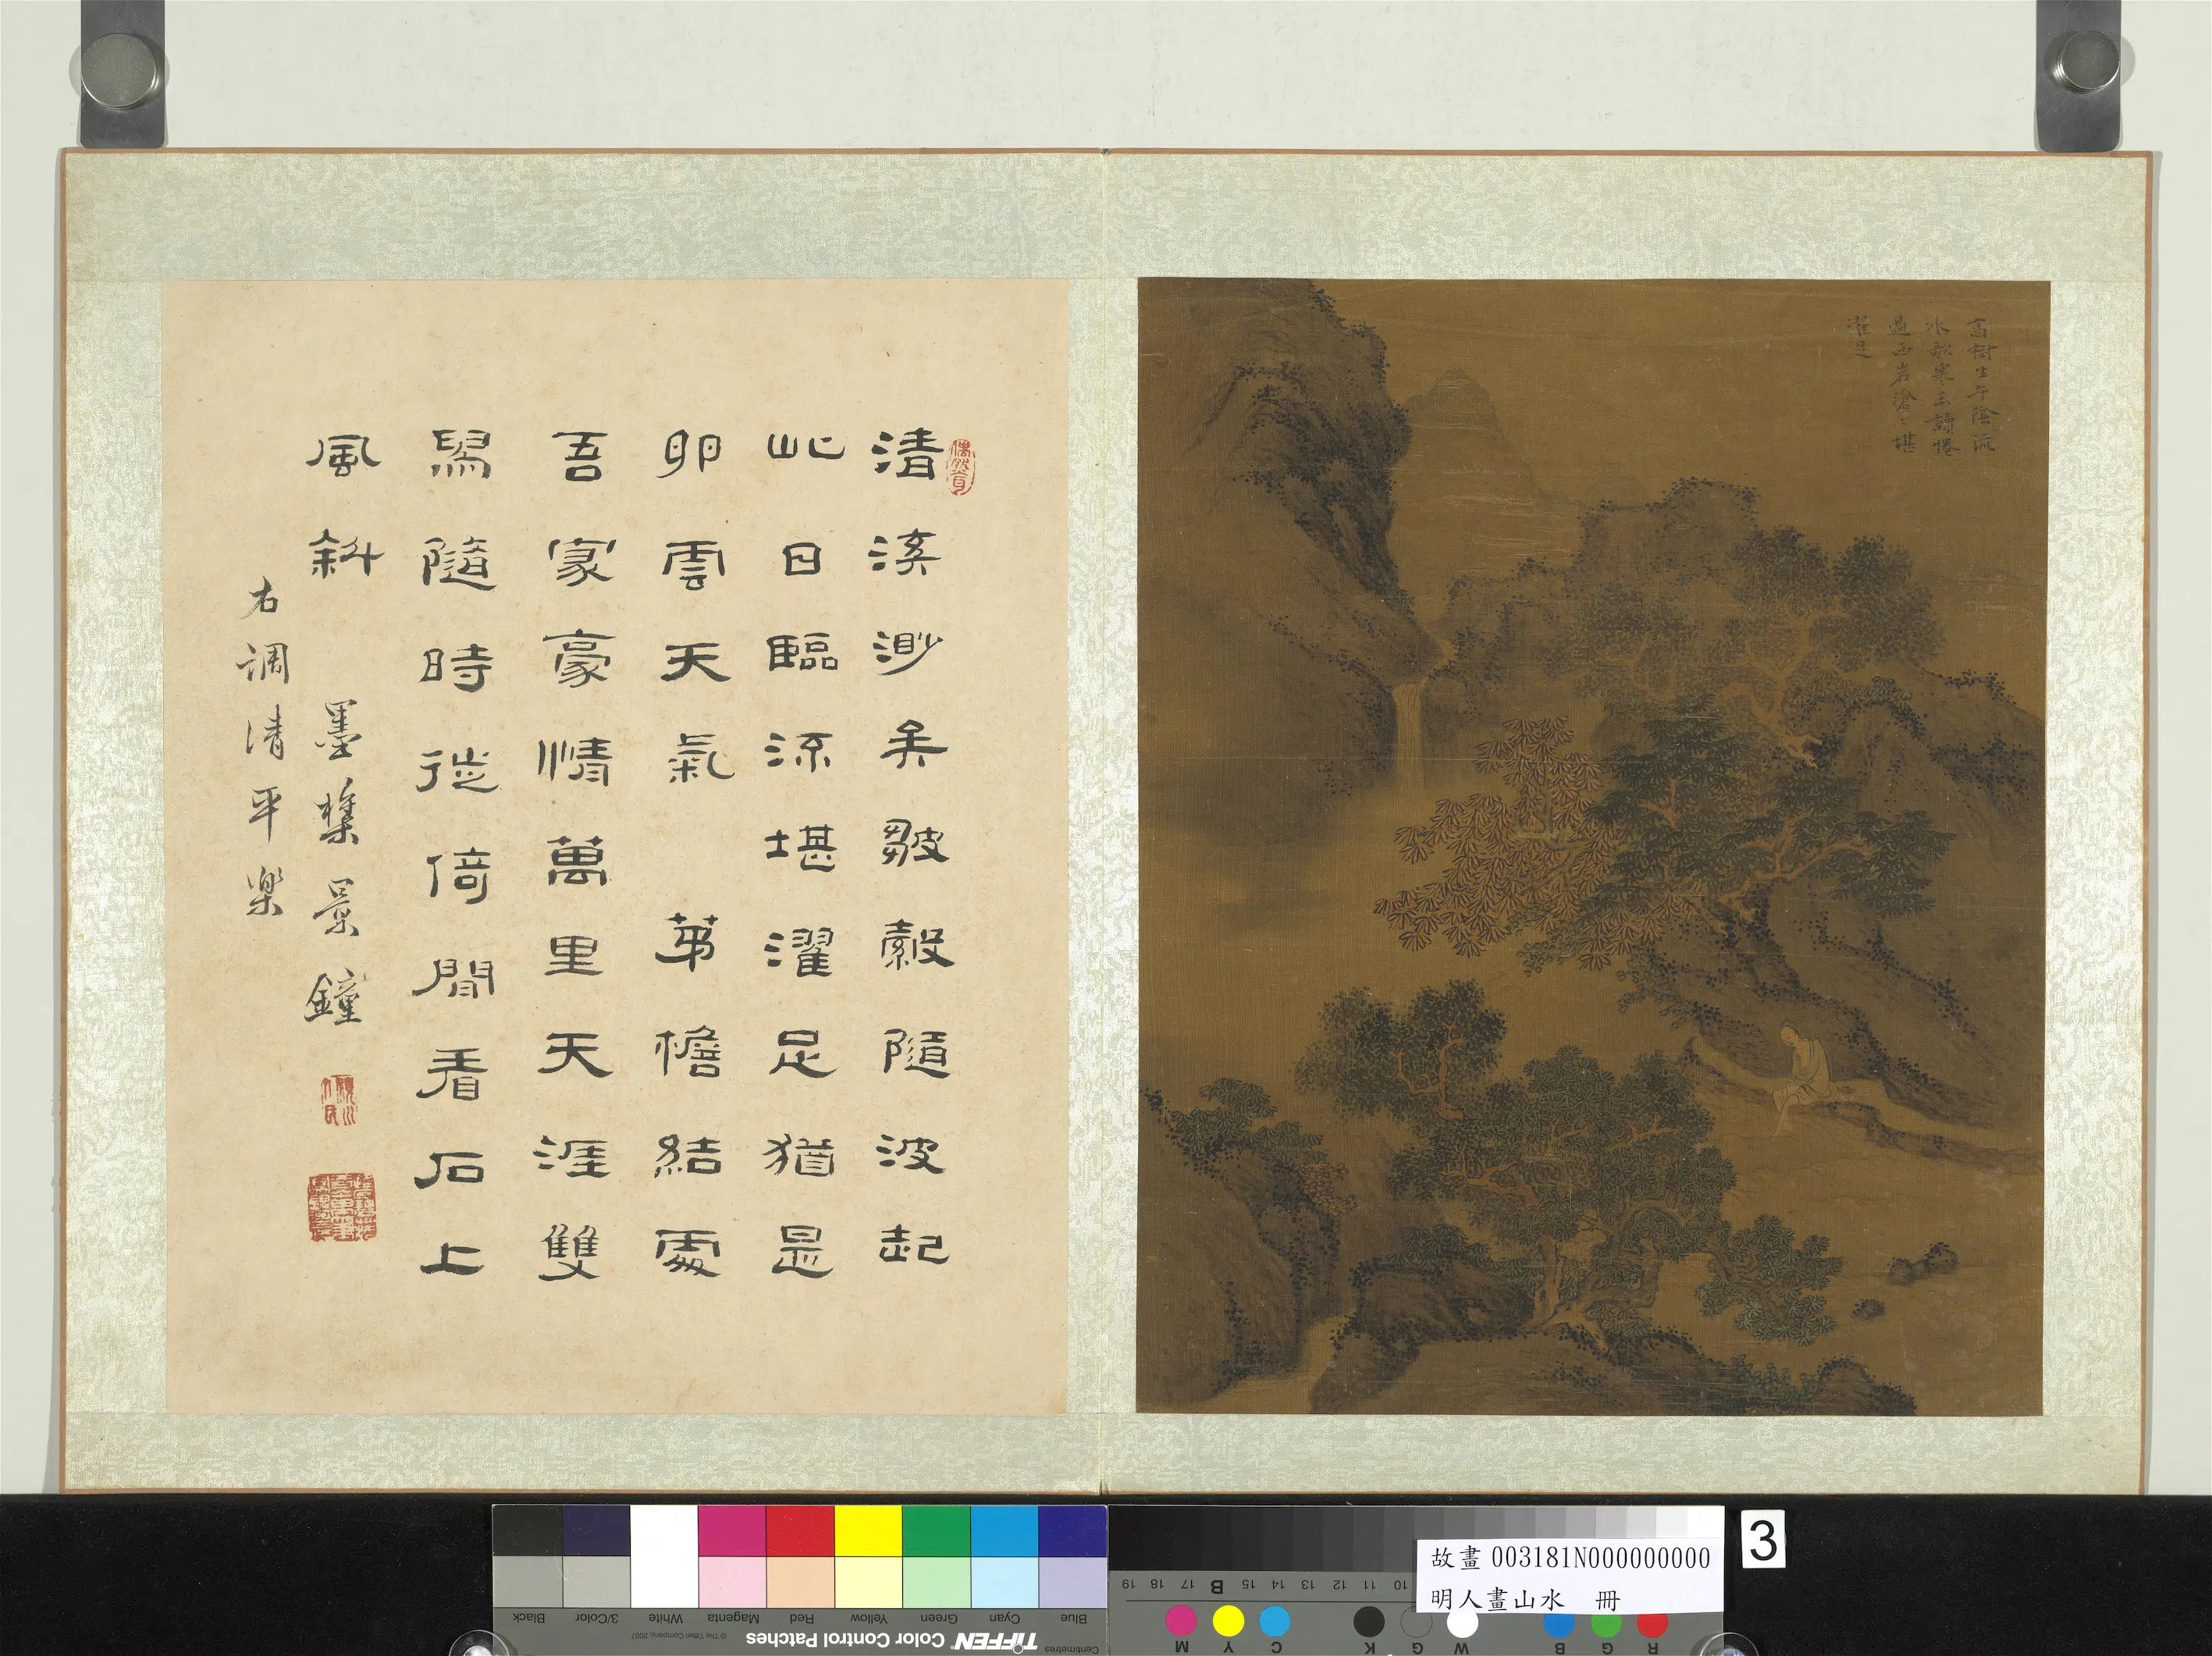 高樹生午陰流
水敲寒玉讀倦
過西岩滄々堪
濯足
清溪渺矣皺縠隨波起
此日臨流堪濯足猶是
卯雲天氣 茅檐結處
吾家豪情萬里天涯雙
舄隨時徙倚閒看石上
風斜
墨樵景鐘
右調清平樂
故畫 003181N000000000
明人畫山水 冊
3
TIFFEN Color Control Patches
© The Tiffen Company, 2007
Centimetres
Blue Cyan Green Yellow Red Magenta White 3/Color Black
10 11 12 13 14 15 B 17 18 19
R G B W G K C Y M